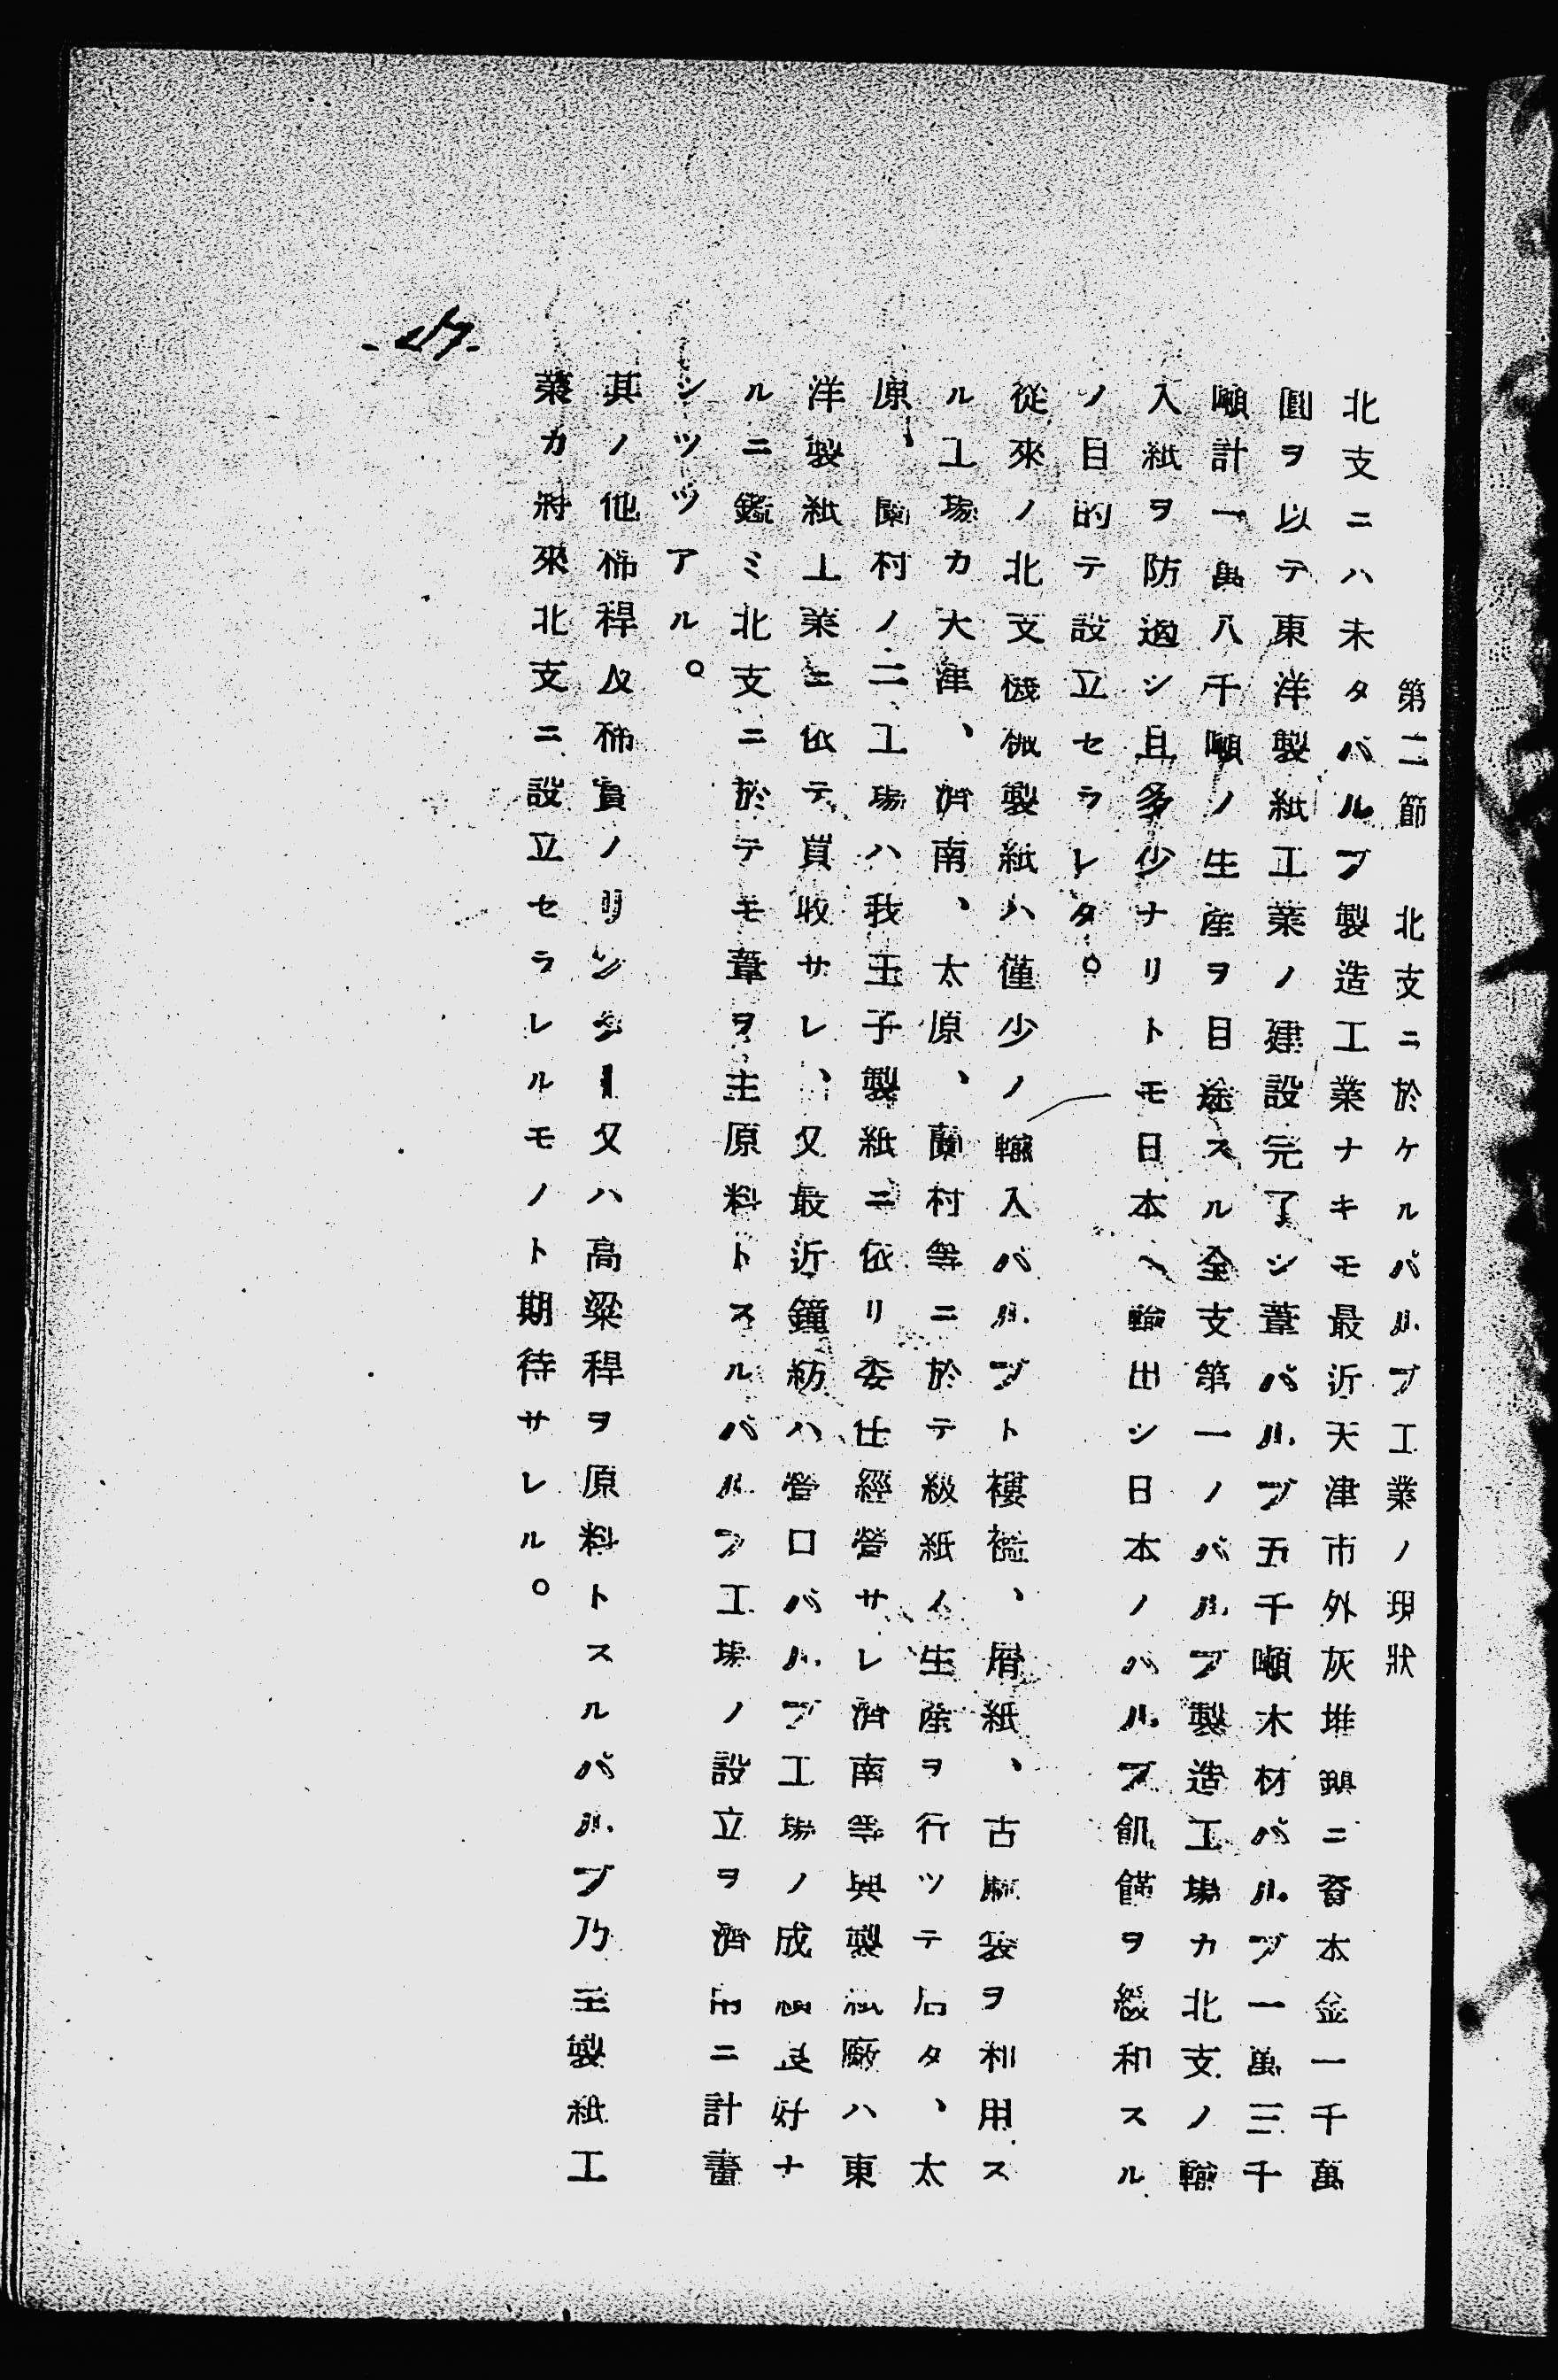 第二節　北支ニ於ケルパルプ工業ノ現狀
北支ニハ未タパルプ製造工業ナキモ最近天津市外灰堆鎭ニ資本金一千萬
圓ヲ以テ東洋製紙工業ノ建設完了シ葦パルプ五千噸木材パルプ一萬三千
噸計一萬八千噸ノ生產ヲ目途スル全支第一ノパルプ製造工場カ北支ノ輸
入紙ヲ防遏シ且多少ナリトモ日本ヘ輸出シ日本ノパルプ飢饉ヲ緩和スル
ノ目的テ設立セラレタ。
從來ノ北支機械製紙ハ僅少ノ輸入パルプト襤褸、屑紙、古麻袋ヲ利用ス
ル工場カ天津、濟南、太原、蘭村等ニ於テ級紙ノ生產ヲ行ツテ居タ、太
原、蘭村ノ二工場ハ我王子製紙ニ依リ委任經營サレ濟南等興製紙廠ハ東
洋製紙工業ニ依テ買收サレ、又最近鐘紡ハ營口パルプ工場ノ成績良好ナ
ルニ鑑ミ北支ニ於テモ葦ヲ主原料トスルパルプ工場ノ設立ヲ濟南ニ計畫
シツツアル。
其ノ他棉稈及棉實ノリンター又ハ高粱稈ヲ原料トスルパルプ乃至製紙工
業カ將來北支ニ設立セラレルモノト期待サレル。